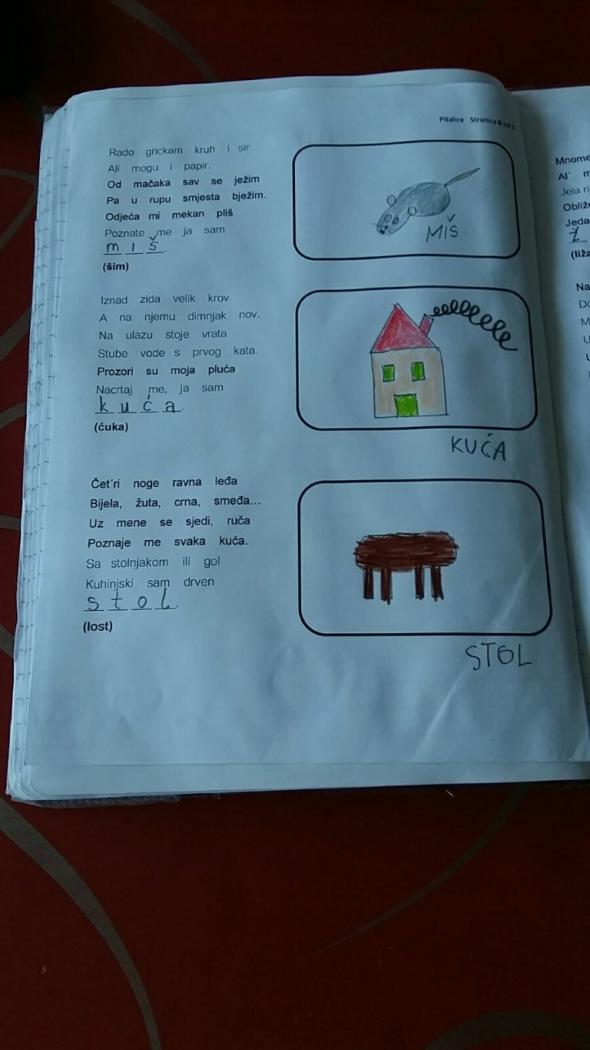 Pitalice Stranica
Rado grickam kruh i sir
Ali mogu i papir.
Od mačaka sav se ježim
Pa u rupu smjesta bježim.
Odjeća mi mekan pliš
Poznate me ja sam
miš.
(šim)
MIŠ
Iznad zida velik krov
A na njemu dimnjak nov.
Na ulazu stoje vrata
Stube vode s prvog kata.
Prozori su moja pluća
Nacrtaj me, ja sam
kuća.
(ćuka)
KUĆA
Čet´ri noge ravna leđa
Bijela, žuta, crna, smeđa...
Uz mene se sjedi, ruča
Poznaje me svaka kuća.
Sa stolnjakom ili gol
Kuhinjski sam drven
stol.
(lost)
STOL
Mnome
Al´ m
Jela ri
Obliže
Jeda
(liža
Na
Do
M
U